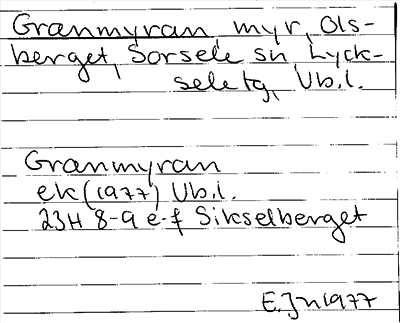 Granmyran, myr, Ols-
berget, Sorsele sn Lyck-
sele tg, Vb.l.
Granmyran
ek (1977) Vb.l.
23H 8-9 e-f Sikselberget
E.Jn 1977